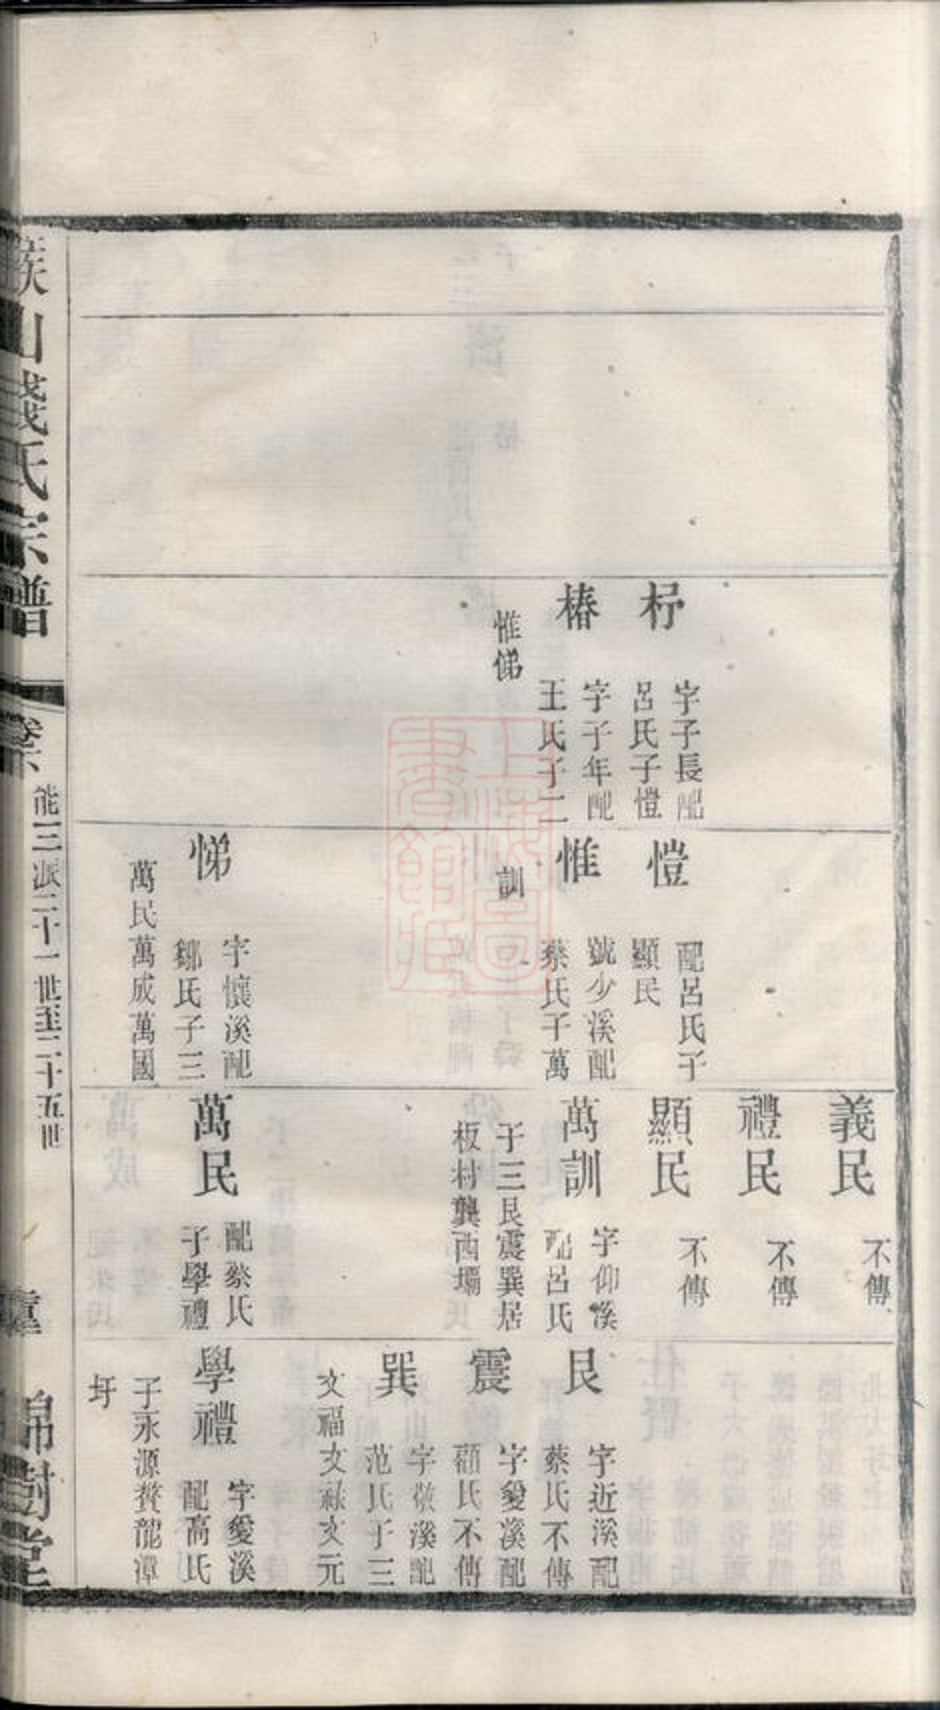 杼
字子長配
呂氏子愷
椿
字子年配
王氏子二
惟悌
愷
配呂氏子
顯民
惟
號少溪配
蔡氏子萬
訓
悌
字懷溪配
鄒氏子三
萬民萬成萬國
義民
不傳
禮民
不傳
顯民
不傳
萬訓
字仰溪
配呂氏
子三艮震巽居
板村龔西壩
萬民
配蔡氏
子學禮
艮
字近溪配
蔡氏不傳
震
字愛溪配
顧氏不傳
巽
字敬溪配
范氏子三
文福文祿文元
學禮
字愛溪
配高氏
子永源贅龍潭
圩
山錢氏宗譜
卷六
能三派二十一世至二十五世
錦樹堂
上海圖書館藏